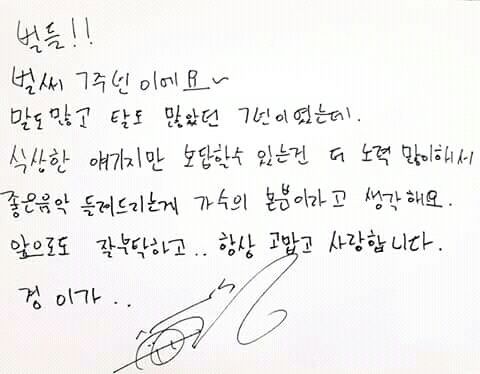 벌들!!
벌써 7주년이에요~
말도많고 탈도 많았던 7년이였는데.
식상한 얘기지만 보답할수 있는건 더 노력 많이해서
좋은음악 들려드리는게 가수의 본분이라고 생각해요.
앞으로도 잘부탁하고.. 항상 고맙고 사랑합니다.
경이가..